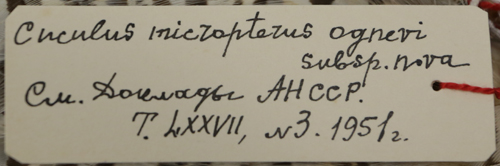 Cuculus micropterus ognevi
subsp. nova
См. Доклады АН ССР.
Т. LXXVII, № 3. 1951 г.